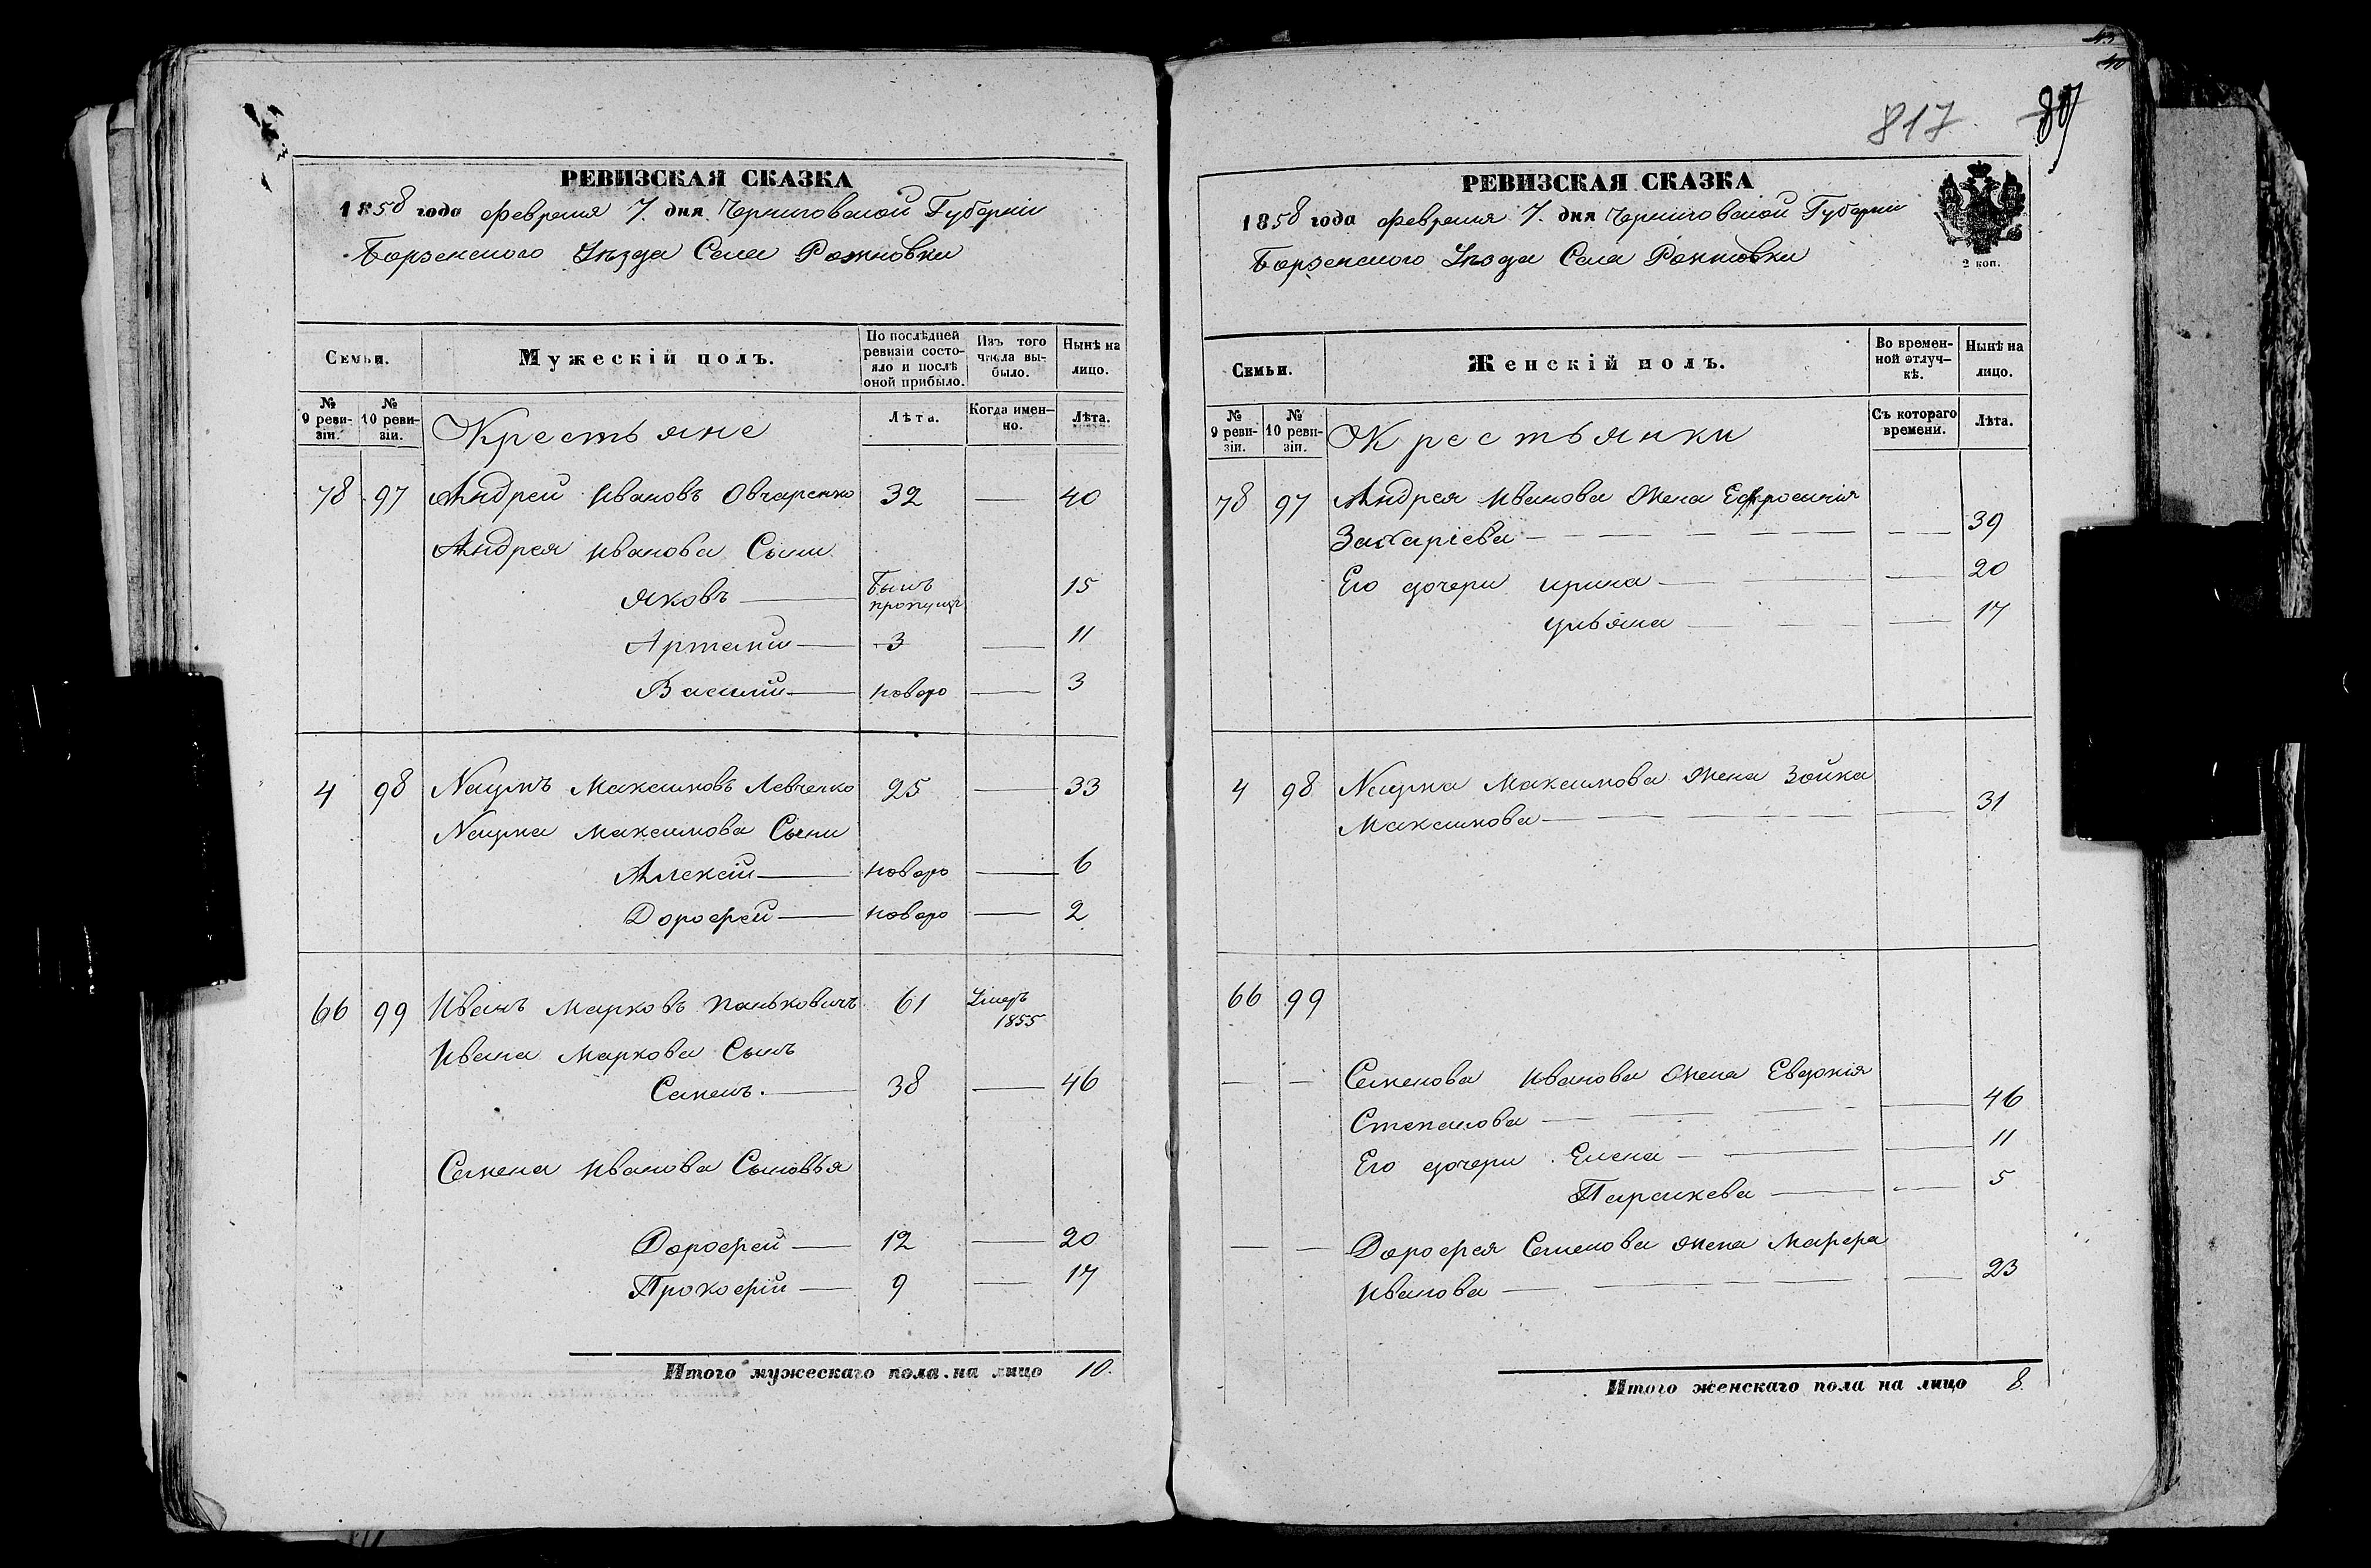 РЕВИЗСКАЯ СКАЗКА
1858 года Февраля 7. дня Черниговской Губерніи
Борзенского Уѣзда Села Рожновки
Семьи.
Мужескій полъ.
По послѣдней ревизіи состояло и послѣ оной прибыло.
Изъ того числа выбыло.
Нынѣ на лицо.
№ 9 ревизіи.
№ 10 ревизіи.
Крестьяне
Лѣта.
Когда именно.
Лѣта.
78 97 Андрей Ивановъ Овчаренко 32 — 40
Андрея Иванова Сыны
Яковъ — Былъ пропущ 15
Артемій — 3 — 11
Василій — новоро — 3
4 98 Наумъ Максимовъ Левченко 25 — 33
Наума Максимова Сыны
Алексій — новоро — 6
Дорофей — новоро — 2
66 99 Иванъ Марковъ Паньковичъ 61 Умеръ 1855
Ивана Маркова Сынъ
Семенъ. — 38 — 46
Семена Иванова Сыновья
Дорофей — 12 — 20
Прокофій — 9 — 17
Итого мужескаго пола на лицо 10.
817. 89
РЕВИЗСКАЯ СКАЗКА
1858 года Февраля 7. дня Черниговской Губерніи
2 коп.
Борзенского Уѣзда Села Рожновки
Семьи.
Женскій полъ.
Во временной отлучкѣ.
Нынѣ на лицо.
№ 9 ревизіи.
№ 10 ревизіи.
Крестьянки
Съ котораго времени.
Лѣта.
78 97 Андрея Иванова жена Ефросинія
Захаріева — — 39
Его дочери Ирина — — 20
Ульяна — — 17
4 98 Наума Максимова жена Зойка
Максимова — — 31
66 99
— — Семенова Иванова жена Евдокія
Степанова — — 46
Его дочери Елена — — 11
Параскева — — 5
— — Дорофея Семенова жена Марфа
Иванова — — 23
Итого женскаго пола на лицо 8.